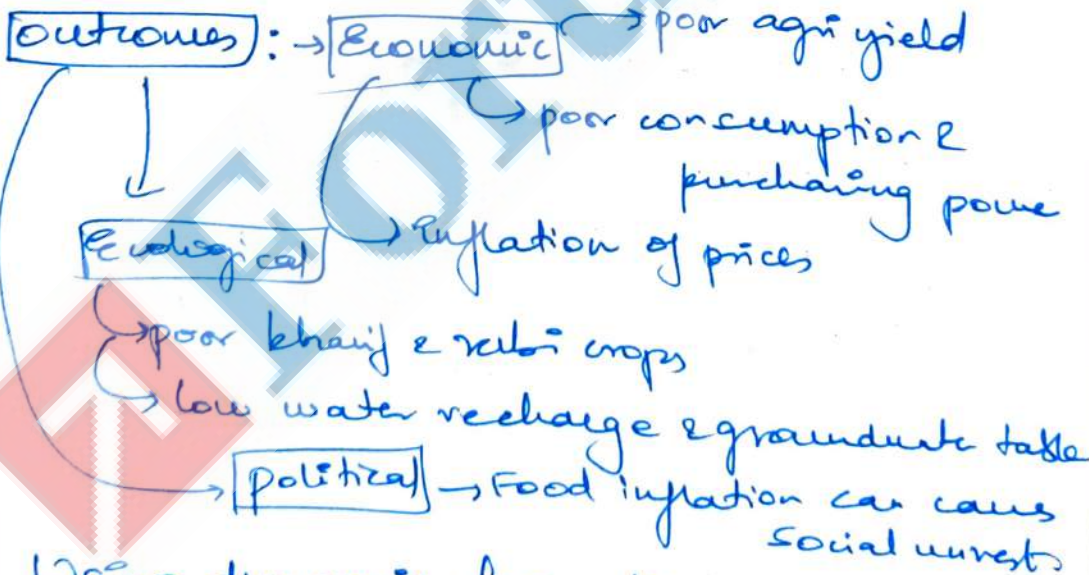 outcomes : → Economic → poor agri yield
→ poor consumption &
purchasing powe
Ecological → Inflation of prices
→ poor kharif & rabi crops
→ low water recharge & groundwate table
political → Food inflation can caus
social unrest